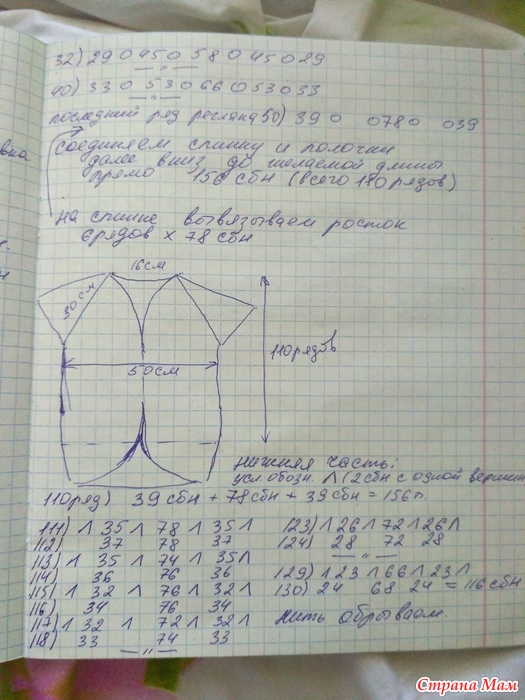 32) 29 0 45 0 58 0 45 0 29
— „ —
40) 33 0 53 0 66 0 53 0 33
— „ —
последний ряд реглана 50) 39 0 0 78 0 0 39
соединяем спинку и полочки
далее вниз до желаемой длины
прямо 156 сбн (всего 110 рядов)
на спинке вывязываем росток
6 рядов х 78 сбн
16 см
30 см
110 рядов
50 см
Нижняя часть:
усл. обозн. Λ (2 сбн с одной вершин
110 ряд) 39 сбн + 78 сбн + 39 сбн = 156 п.
111) Λ 35 Λ 78 Λ 35 Λ
112) 37 78 37
113) Λ 35 Λ 74 Λ 35 Λ
114) 36 76 36
115) Λ 32 Λ 76 Λ 32 Λ
116) 34 76 34
117) Λ 32 Λ 72 Λ 32 Λ
118) 33 74 33
— „ —
123) Λ 26 Λ 72 Λ 26 Λ
124) 28 72 28
— „ —
129) Λ 23 Λ 66 Λ 23 Λ
130) 24 68 24 = 116 сбн
Нить обрываем.
Страна Мам